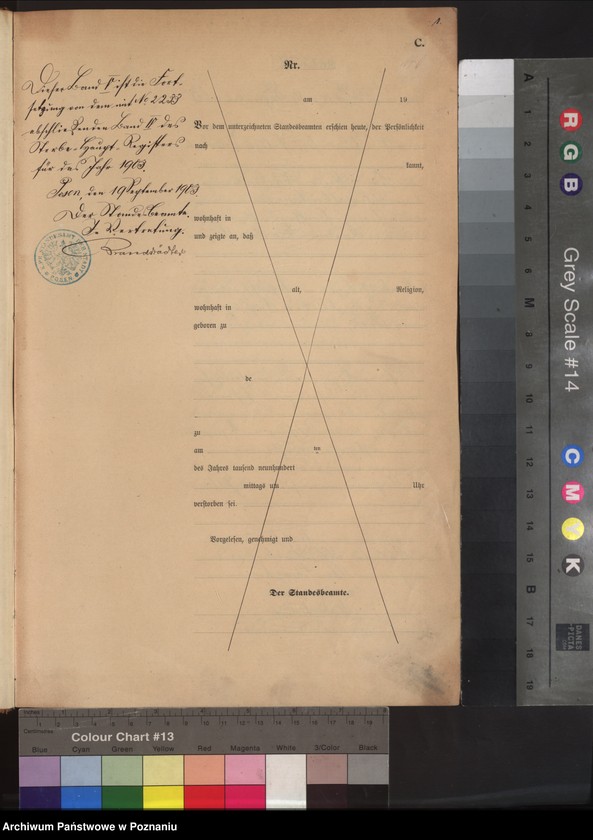 1.
C.
Dieser Band V ist die Fort-
setzung von dem mit No 2233
abschließenden Band IV des
Sterbe-Haupt-Registers
für das Jahr 1903.
Posen, den 19 September 1903.
Der Standesbeamte.
In Vertretung.
Nr.
am 19
Vor dem unterzeichneten Standesbeamten erschien heute, der Persönlichkeit
nach
kannt,
wohnhaft in
und zeigte an, daß
alt, Religion,
wohnhaft in
geboren zu
de
zu
am ten
des Jahres tausend neunhundert
mittags um Uhr
verstorben sei.
Vorgelesen, genehmigt und
Der Standesbeamte.
A 1 2 3 4 5 6 M 8 9 10 11 12 13 14 15 B 17 18 19
R
G
B
Grey Scale #14
C
M
Y
K
DANES
PICTA
Inches
Centimetres
Colour Chart #13
Blue Cyan Green Yellow Red Magenta White 3/Color Black
Archiwum Państwowe w Poznaniu